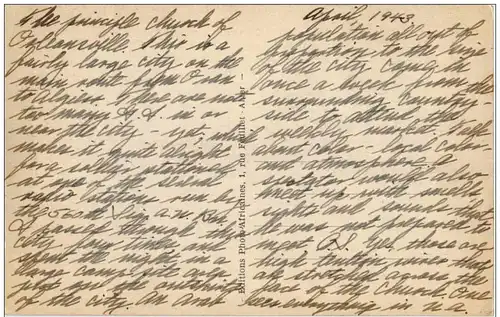 the principle church of
Orleansville. This is a
fairly large city on the
main route from Oran
to Algiers. There are not
too many G.I.'s in or
near the city - yet, which
makes it quite alright
for selling
at one of the
run by
the
I passed through this
city four times and
spent the night in a
large camp
on the outskirts
of the city. An Arab
Editions Photo-Africaines, 1, rue Feuillet - Alger -
April 1943
population all out of
proportion to the size
of the city came in
once a week from the
surrounding country-
side to attend the
weekly market. Talk
about color - local color
and atmosphere
also
with smells
sights and sounds that
he was not prepared to
meet. P.S. Yes, those are
telephone wires they
strung across the
face of the church. One
sees everything in n.a.